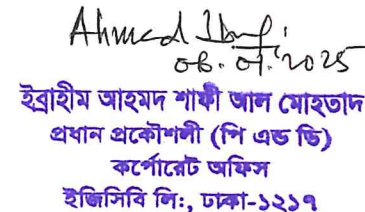 Ahmed
08.01.2025
ইব্রাহীম আহমদ শাফী আল মোহতাদ
প্রধান প্রকৌশলী (পি এন্ড ডি)
কর্পোরেট অফিস
ইজিসিবি লি:, ঢাকা-১২১৭